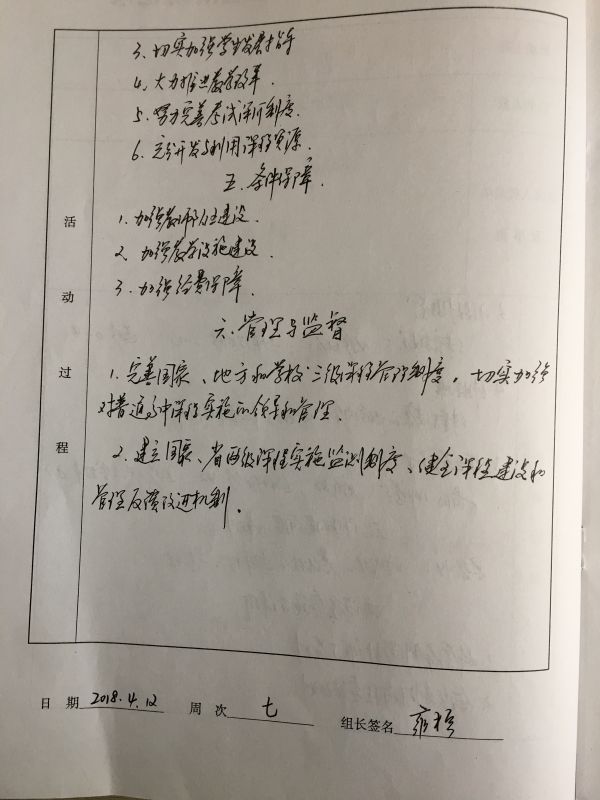 3、切实加强学生发展指导
4、大力推进教学改革.
5.努力完善考试评价制度.
6.充分开发与利用课程资源.
五.条件保障.
1.加强教师队伍建设.
2.加强教学设施建设.
3.加强经费保障.
六.管理与监督
1.完善国家、地方和学校三级课程管理制度,切实加强
对普通高中课程实施的领导和管理.
2.建立国家、省两级课程实施监测制度、健全课程建设和
管理反馈改进机制.
活
动
过
程
日 期 2018.4.12 周 次 七 组长签名